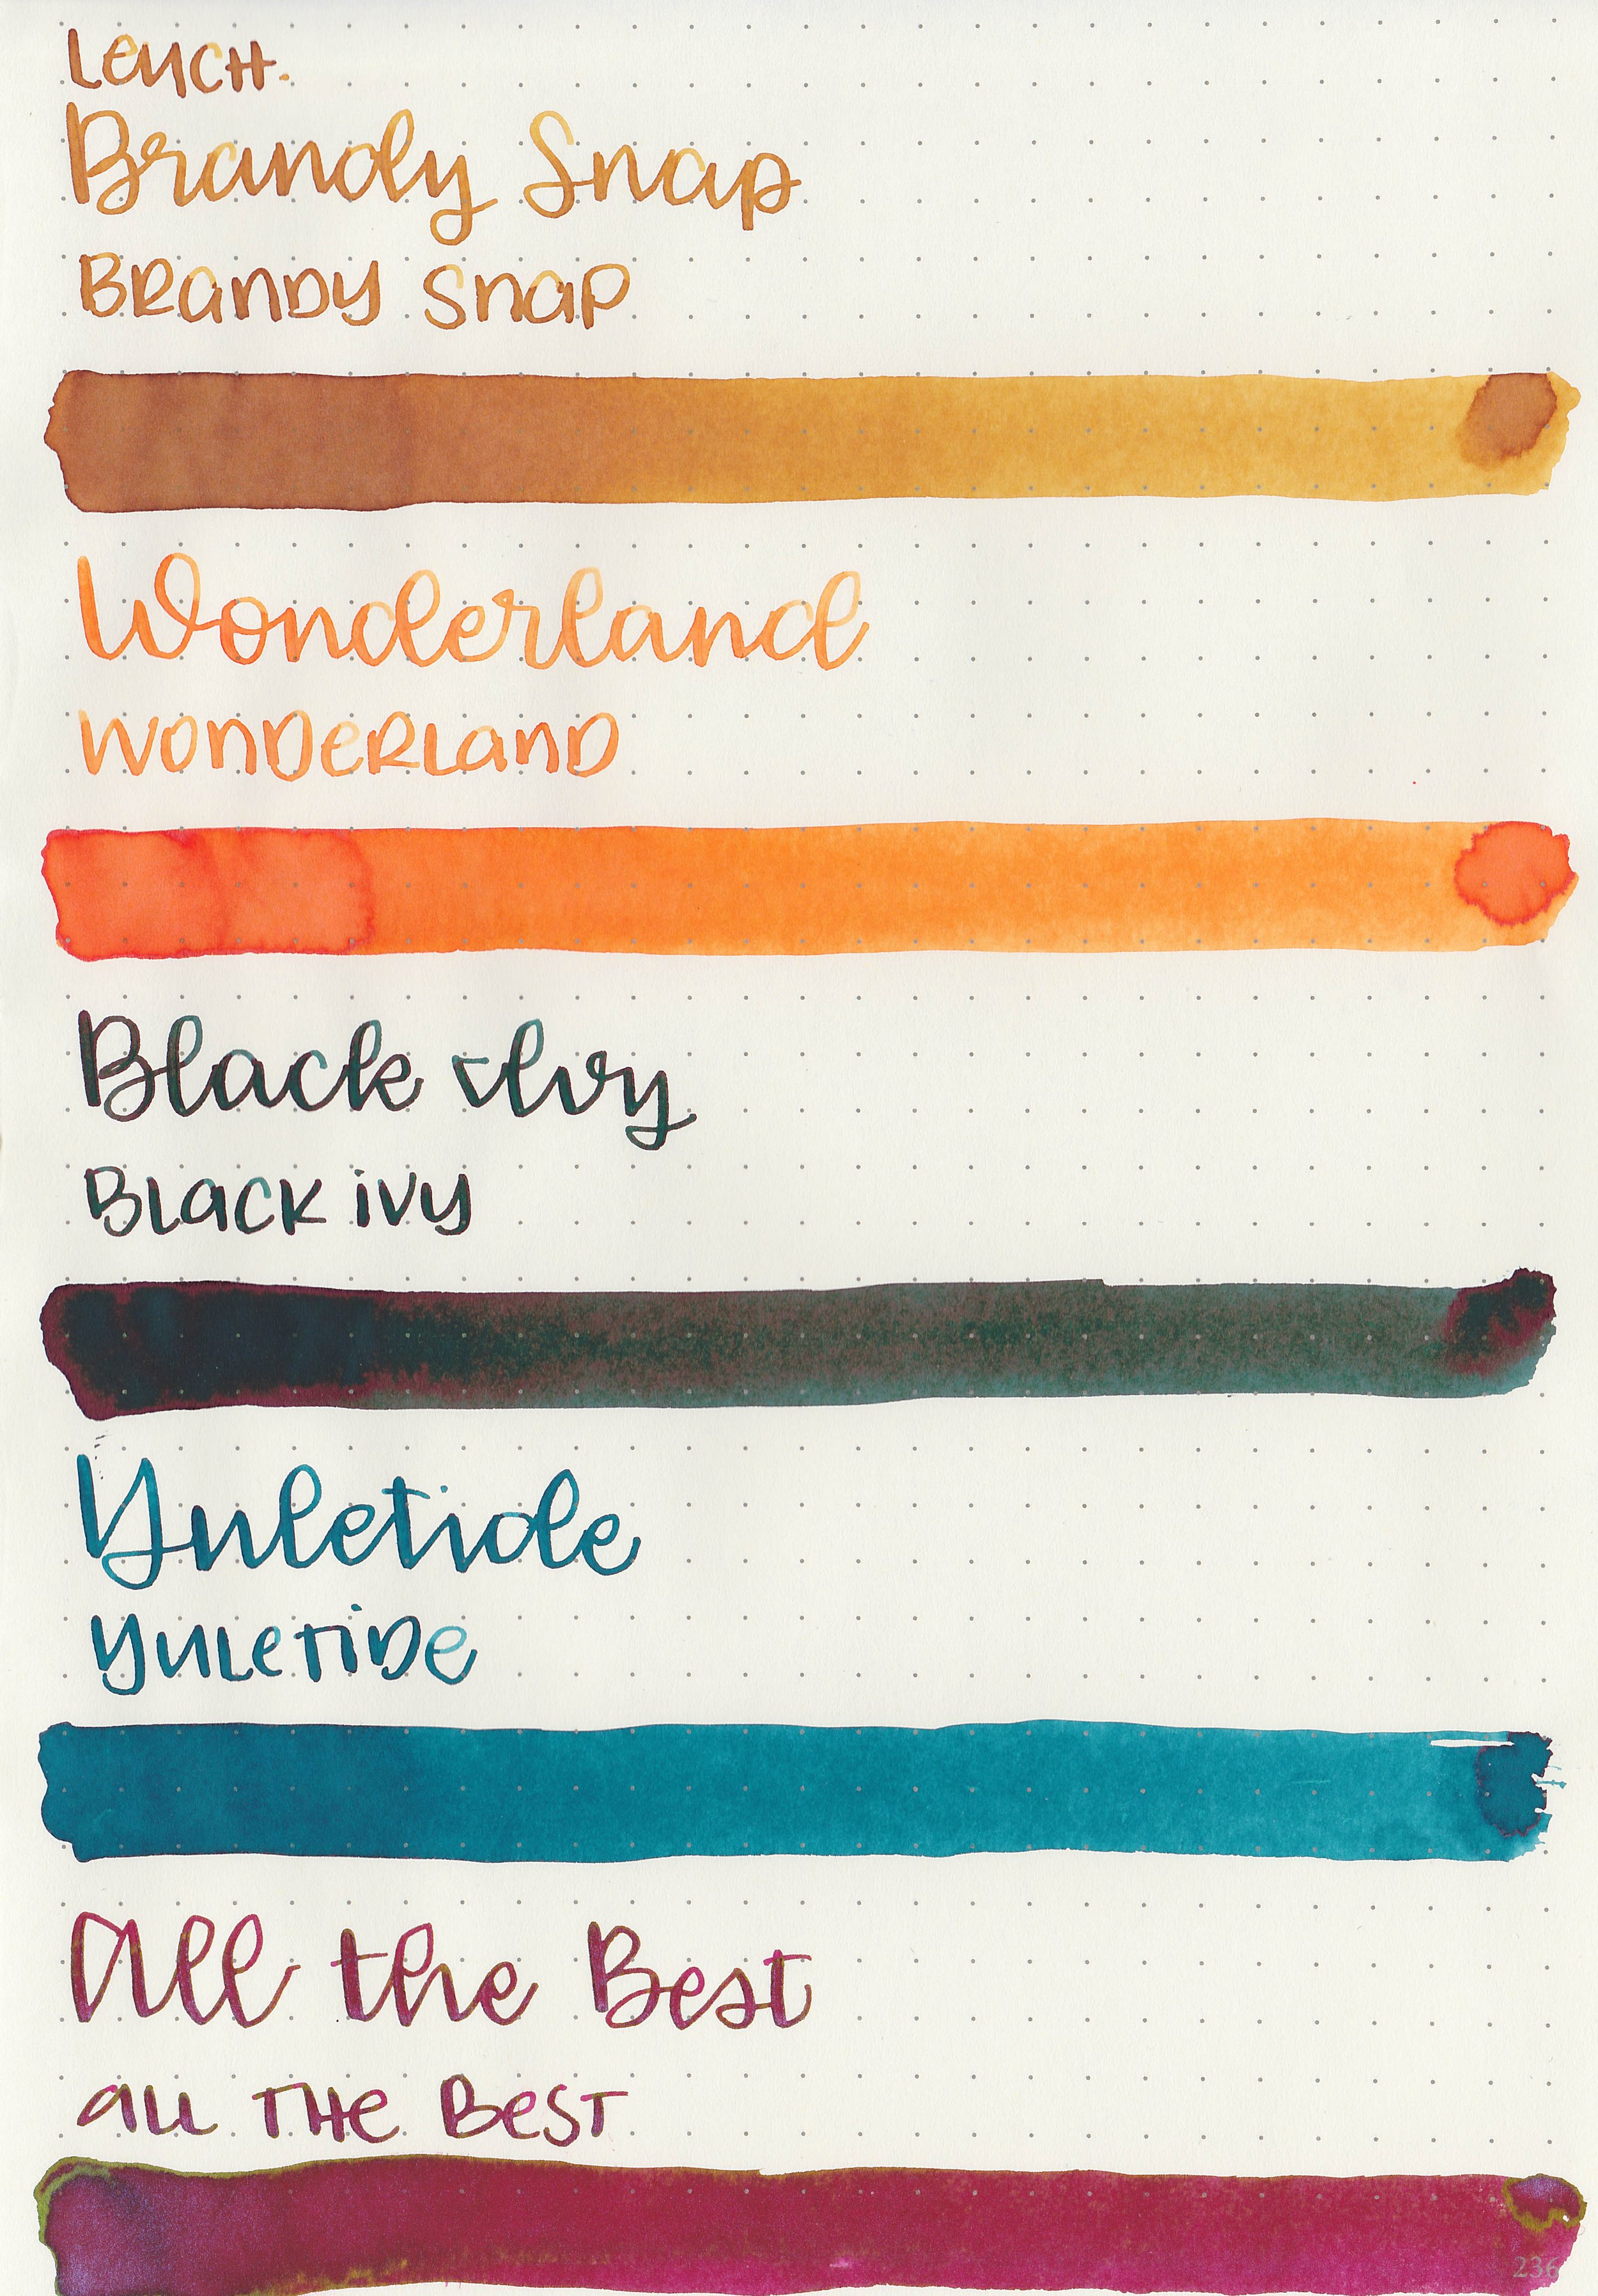 Leuch.
Brandy Snap
Brandy Snap
Wonderland
Wonderland
Black Ivy
Black ivy
Yuletide
Yuletide
All the Best
All the Best
236